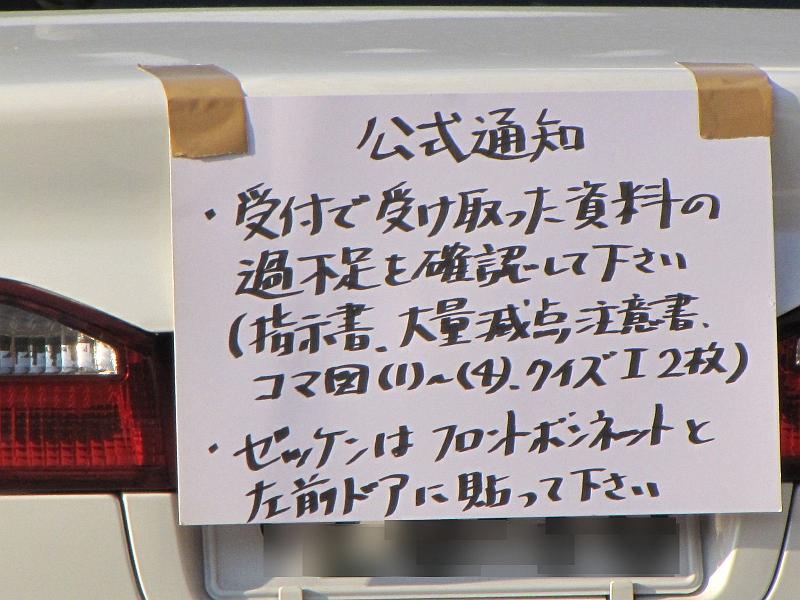 公式通知
・受付で受け取った資料の
過不足を確認して下さい
(指示書、大量減点注意書、
コマ図(1)~(4)、クイズⅠ2枚)
・ゼッケンはフロントボンネットと
左前ドアに貼って下さい